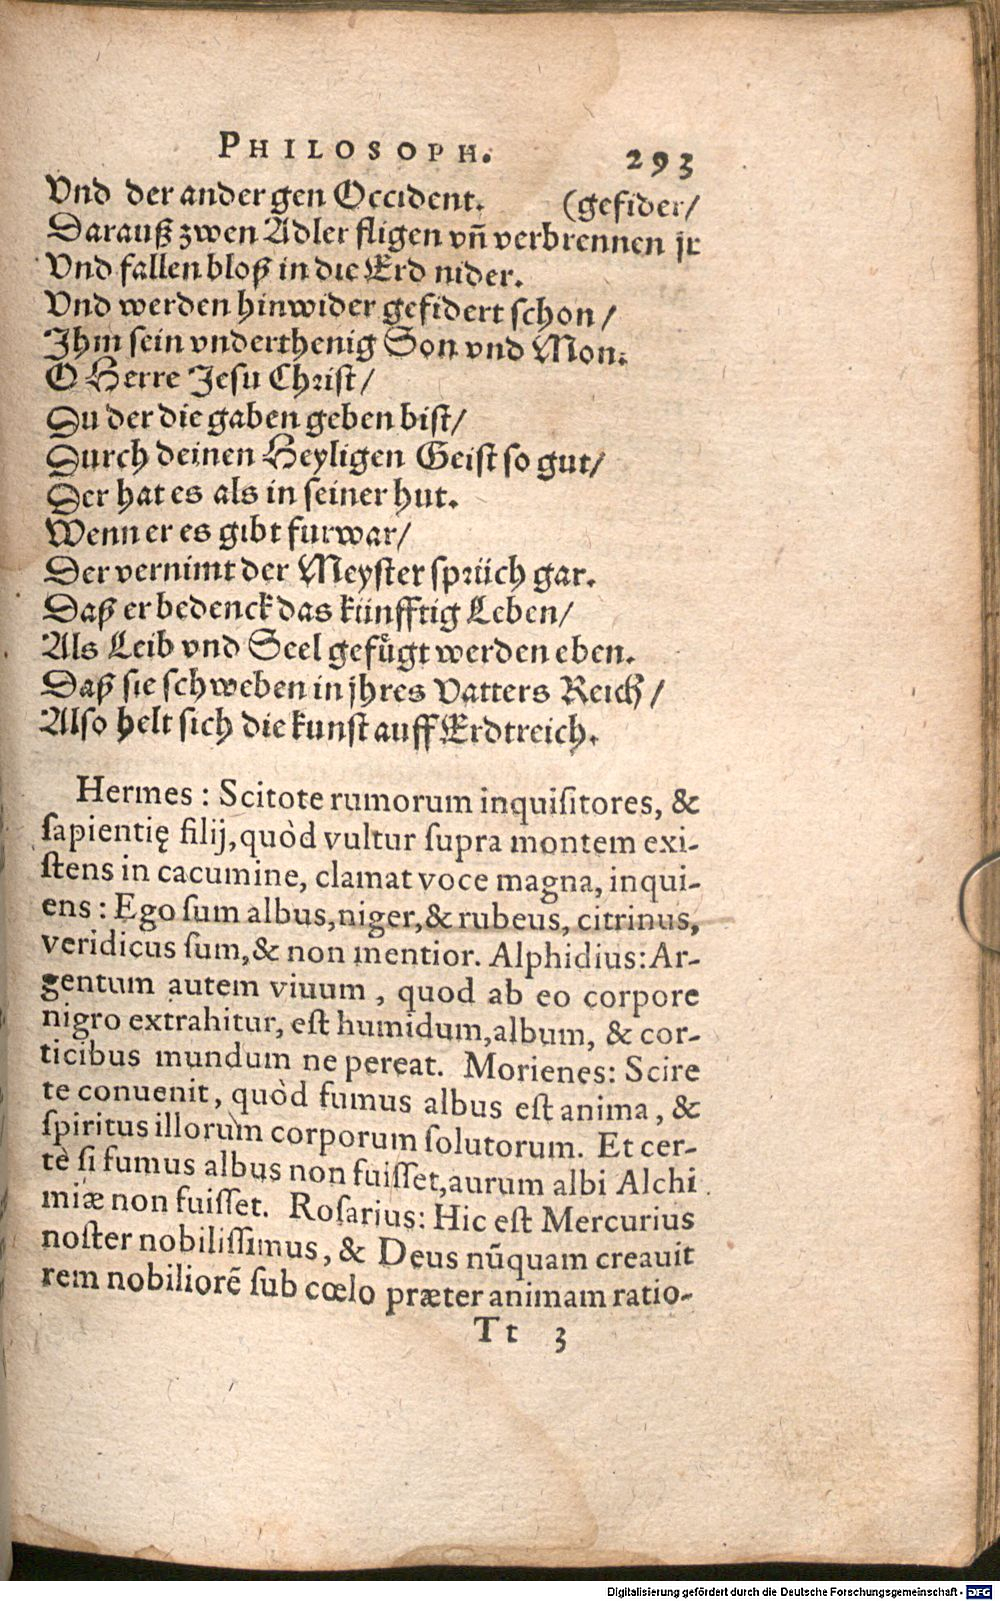 PHILOSOPH. 293
Vnd der ander gen Occident. (gefider/
Darauß zwen Adler fligen vñ verbrennen jr
Vnd fallen bloß in die Erd nider.
Vnd werden hinwider gefidert schon/
Ihm sein vnderthenig Son vnd Mon.
O Herre Jesu Christ/
Du der die gaben geben bist/
Durch deinen Heyligen Geist so gut/
Der hat es als in seiner hut.
Wenn er es gibt furwar/
Der vernimt der Meyster sprüch gar.
Daß er bedenck das künfftig Leben/
Als Leib vnd Seel gefügt werden eben.
Daß sie schweben in jhres Vatters Reich/
Also helt sich die kunst auff Erdtreich.
Hermes: Scitote rumorum inquisitores, &
sapientię filij, quòd vultur supra montem exi-
stens in cacumine, clamat voce magna, inqui-
ens: Ego sum albus, niger, & rubeus, citrinus,
veridicus sum, & non mentior. Alphidius: Ar-
gentum autem viuum, quod ab eo corpore
nigro extrahitur, est humidum, album, & cor-
ticibus mundum ne pereat. Morienes: Scire
te conuenit, quòd fumus albus est anima, &
spiritus illorum corporum solutorum. Et cer-
tè si fumus albus non fuisset, aurum albi Alchi
miæ non fuisset. Rosarius: Hic est Mercurius
noster nobilissimus, & Deus nũquam creauit
rem nobiliorẽ sub cœlo præter animam ratio-
Tt 3
Digitalisierung gefördert durch die Deutsche Forschungsgemeinschaft - DFG